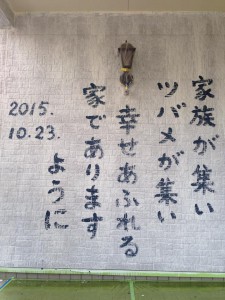 家族が集い
ツバメが集い
幸せあふれる
家であります
ように
2015.
10.23.